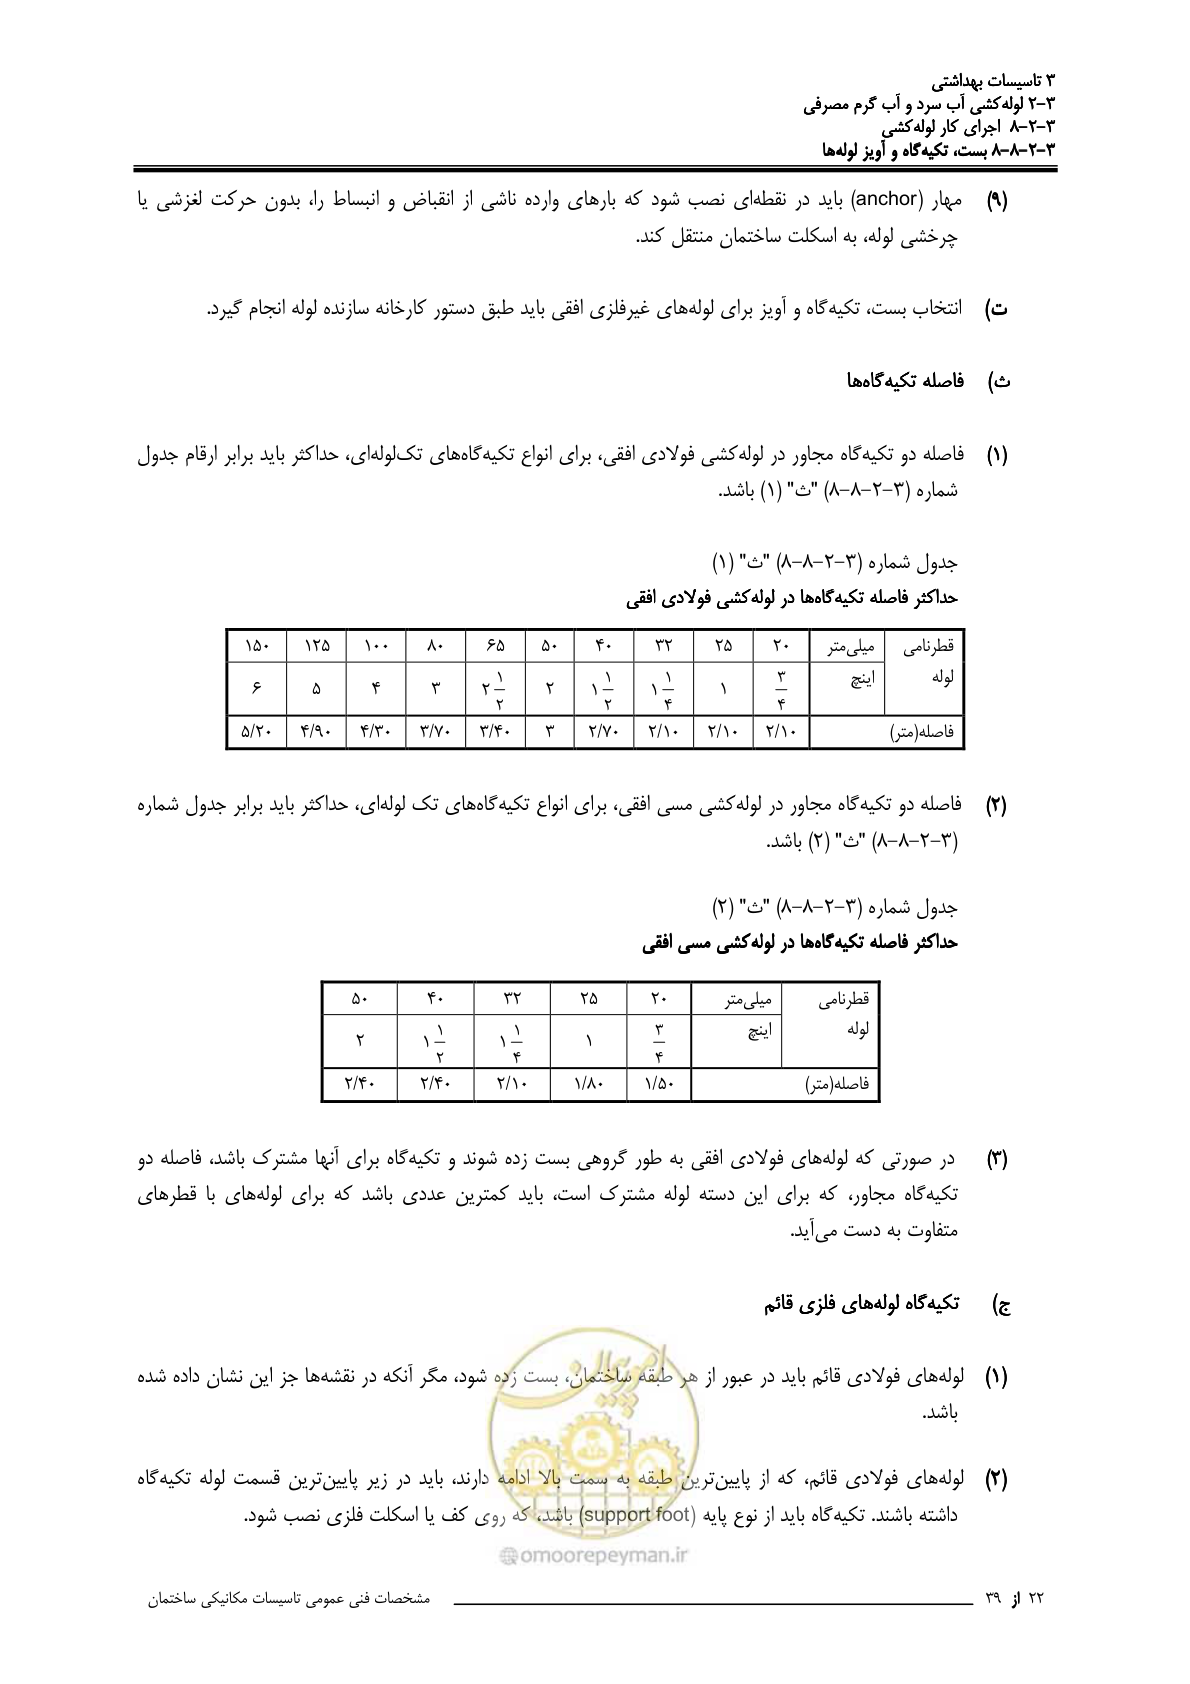 ۳ تاسیسات بهداشتی
۳-۲ لوله‌کشی آب سرد و آب گرم مصرفی
۳-۲-۸ اجرای کار لوله‌کشی
۳-۲-۸-۸ بست، تکیه‌گاه و آویز لوله‌ها
(۹) مهار (anchor) باید در نقطه‌ای نصب شود که بارهای وارده ناشی از انقباض و انبساط را، بدون حرکت لغزشی یا
چرخشی لوله، به اسکلت ساختمان منتقل کند.
ت) انتخاب بست، تکیه‌گاه و آویز برای لوله‌های غیرفلزی افقی باید طبق دستور کارخانه سازنده لوله انجام گیرد.
ث) فاصله تکیه‌گاه‌ها
(۱) فاصله دو تکیه‌گاه مجاور در لوله‌کشی فولادی افقی، برای انواع تکیه‌گاه‌های تک‌لوله‌ای، حداکثر باید برابر ارقام جدول
شماره (۳-۲-۸-۸) "ث" (۱) باشد.
جدول شماره (۳-۲-۸-۸) "ث" (۱)
حداکثر فاصله تکیه‌گاه‌ها در لوله‌کشی فولادی افقی
قطرنامی میلی‌متر ۲۰ ۲۵ ۳۲ ۴۰ ۵۰ ۶۵ ۸۰ ۱۰۰ ۱۲۵ ۱۵۰
لوله اینچ ۳/۴ ۱ ۱ ۱/۴ ۱ ۱/۲ ۲ ۲ ۱/۲ ۳ ۴ ۵ ۶
فاصله(متر) ۲/۱۰ ۲/۱۰ ۲/۱۰ ۲/۷۰ ۳ ۳/۴۰ ۳/۷۰ ۴/۳۰ ۴/۹۰ ۵/۲۰
(۲) فاصله دو تکیه‌گاه مجاور در لوله‌کشی مسی افقی، برای انواع تکیه‌گاه‌های تک لوله‌ای، حداکثر باید برابر جدول شماره
(۳-۲-۸-۸) "ث" (۲) باشد.
جدول شماره (۳-۲-۸-۸) "ث" (۲)
حداکثر فاصله تکیه‌گاه‌ها در لوله‌کشی مسی افقی
قطرنامی میلی‌متر ۲۰ ۲۵ ۳۲ ۴۰ ۵۰
لوله اینچ ۳/۴ ۱ ۱ ۱/۴ ۱ ۱/۲ ۲
فاصله(متر) ۱/۵۰ ۱/۸۰ ۲/۱۰ ۲/۴۰ ۲/۴۰
(۳) در صورتی که لوله‌های فولادی افقی به طور گروهی بست زده شوند و تکیه‌گاه برای آنها مشترک باشد، فاصله دو
تکیه‌گاه مجاور، که برای این دسته لوله مشترک است، باید کمترین عددی باشد که برای لوله‌های با قطرهای
متفاوت به دست می‌آید.
ج) تکیه‌گاه لوله‌های فلزی قائم
(۱) لوله‌های فولادی قائم باید در عبور از هر طبقه ساختمان، بست زده شود، مگر آنکه در نقشه‌ها جز این نشان داده شده
باشد.
(۲) لوله‌های فولادی قائم، که از پایین‌ترین طبقه به سمت بالا ادامه دارند، باید در زیر پایین‌ترین قسمت لوله تکیه‌گاه
داشته باشند. تکیه‌گاه باید از نوع پایه (support foot) باشد، که روی کف یا اسکلت فلزی نصب شود.
امور پیمان
@omoorepeyman.ir
۲۲ از ۳۹ مشخصات فنی عمومی تاسیسات مکانیکی ساختمان